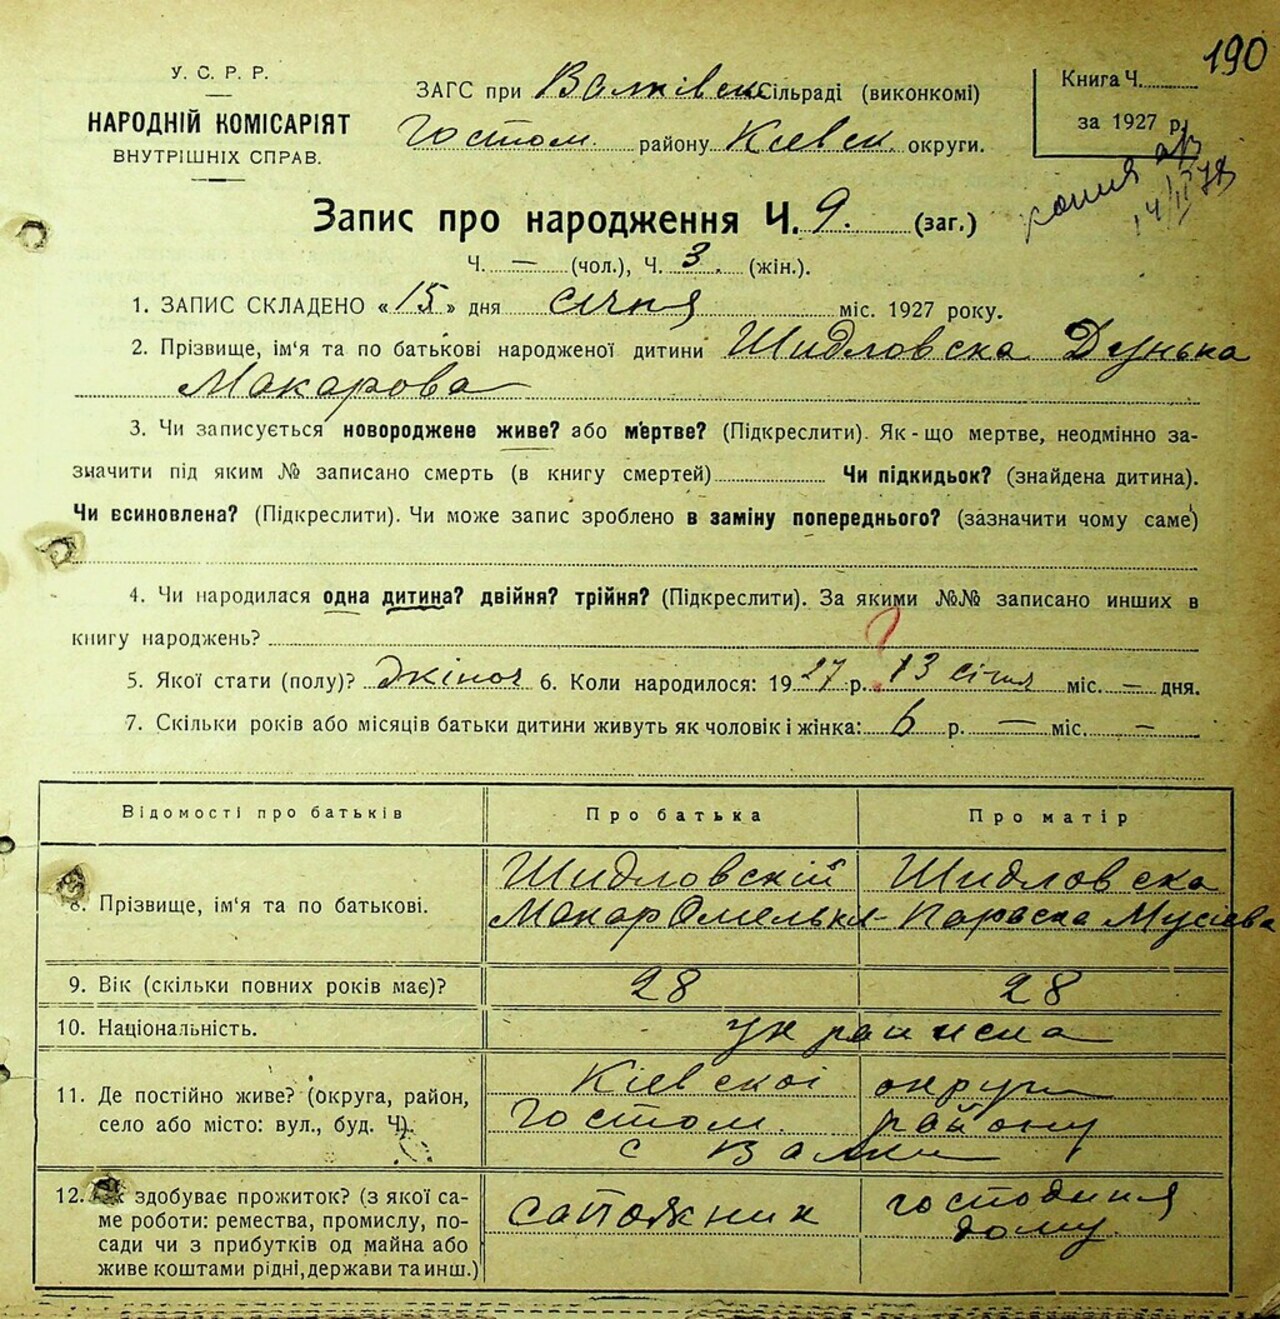 190
У. С. Р. Р.
НАРОДНІЙ КОМІСАРІЯТ
ВНУТРІШНІХ СПРАВ.
ЗАГС при Валківськ Сільраді (виконкомі)
Гостом. району Київськ. округи.
Книга Ч.
за 1927 р.
копия
14/II 78
Запис про народження Ч. 9. (заг.)
Ч. — (чол.), Ч. 3. (жін.).
1. ЗАПИС СКЛАДЕНО «15» дня січня міс. 1927 року.
2. Прізвище, ім'я та по батькові народженої дитини Шидловска Дунька
Макарова
3. Чи записується новороджене живе? або мертве? (Підкреслити). Як-що мертве, неодмінно за-
значити під яким № записано смерть (в книгу смертей) Чи підкидьок? (знайдена дитина).
Чи всиновлена? (Підкреслити). Чи може запис зроблено в заміну попереднього? (зазначити чому саме)
4. Чи народилася одна дитина? двійня? трійня? (Підкреслити). За якими №№ записано инших в
книгу народжень?
5. Якої стати (полу)? Жіноч 6. Коли народилося: 1927 р. 13 січня міс. — дня.
7. Скільки років або місяців батьки дитини живуть як чоловік і жінка: 6 р. — міс. —
Відомості про батьків Про батька Про матір
8. Прізвище, ім'я та по батькові. Шидловскій Шидловска
Макар Омелькв- Параска Мусієва
9. Вік (скільки повних років має)? 28 28
10. Національність. українска
11. Де постійно живе? (округа, район, Кіевскоі округи
село або місто: вул., буд. Ч). Гостом. району
с Валки
12. Як здобуває прожиток? (з якої са- сапожник господиня
ме роботи: ремества, промислу, по- дому.
сади чи з прибутків од майна або
живе коштами рідні, держави та инш.)